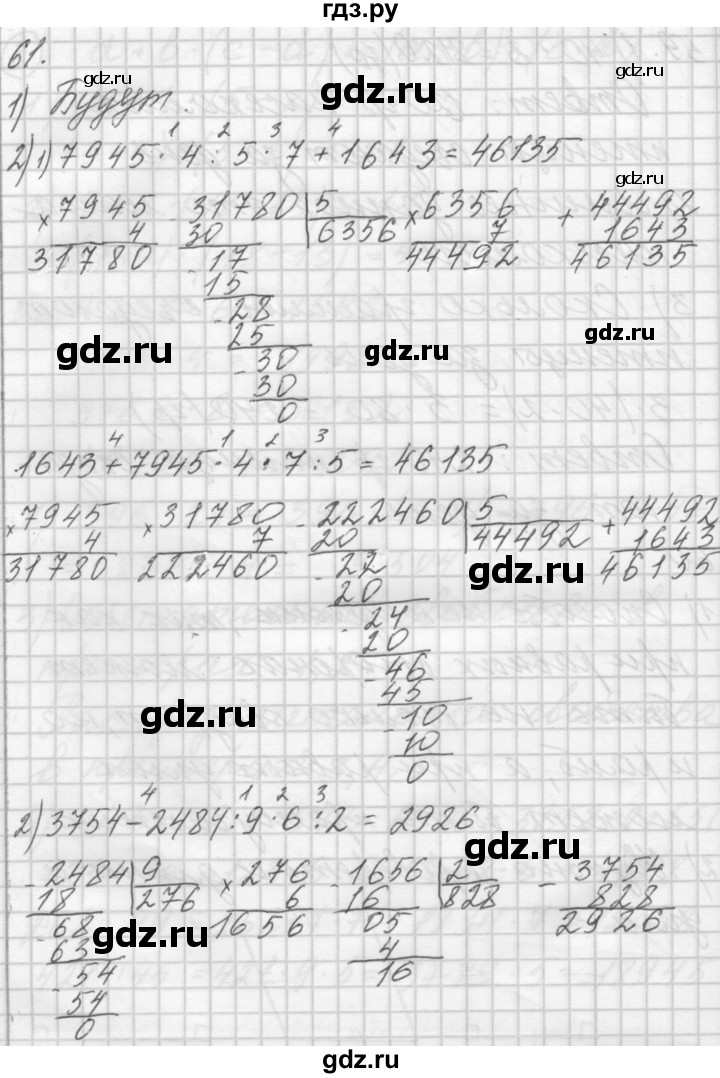 гдз.ру
61.
gdz.ru
1) Будут.
gdz.ru
gdz.ru
1 2 3 4
2) 1) 7945 · 4 : 5 · 7 + 1643 = 46135
gdz.ru
× 7945 - 31780 | 5 × 6356 + 44492
4 30 6356 7 1643
31780 - 17 44492 46135
15
- 28
gdz.ru gdz.ru gdz.ru
25
- 30
30
0
4 1 2 3
1643 + 7945 · 4 · 7 : 5 = 46135
× 7945 × 31780 - 222460 | 5 + 44492
4 7 20 44492 1643
31780 222460 - 22 46135
gdz.ru
20
- 24
20
- 46
45
gdz.ru
- 10
10
0
gdz.ru
4 1 2 3
2) 3754 - 2484 : 9 · 6 : 2 = 2926
- 2484 | 9 × 276 - 1656 | 2 - 3754
18 276 6 16 828 828
- 68 1656 05 2926
63 4
- 54 16
54
0
gdz.ru
gdz.ru
gdz.ru